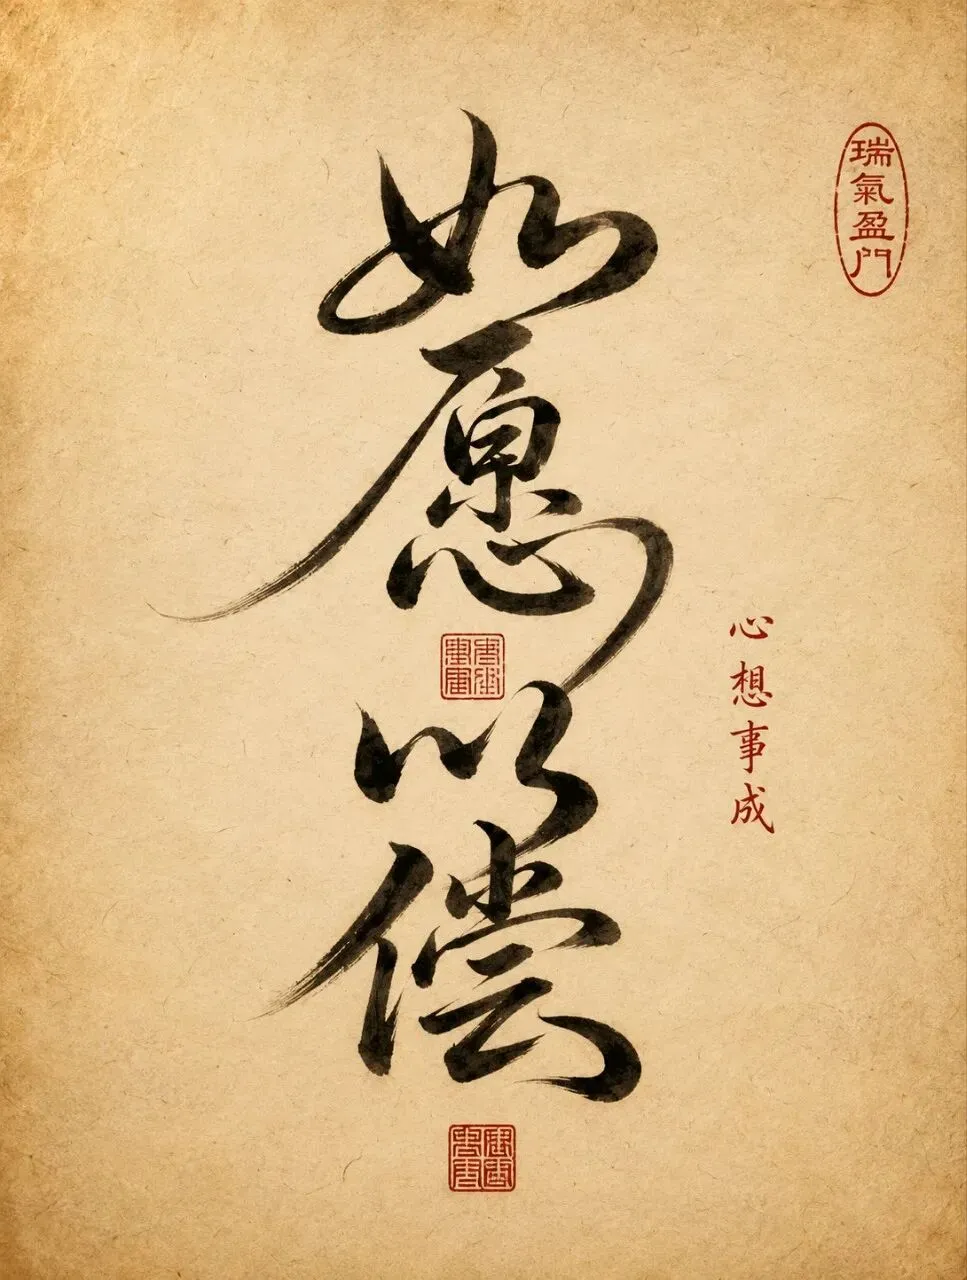 瑞氣盈門
心想事成
如愿以偿